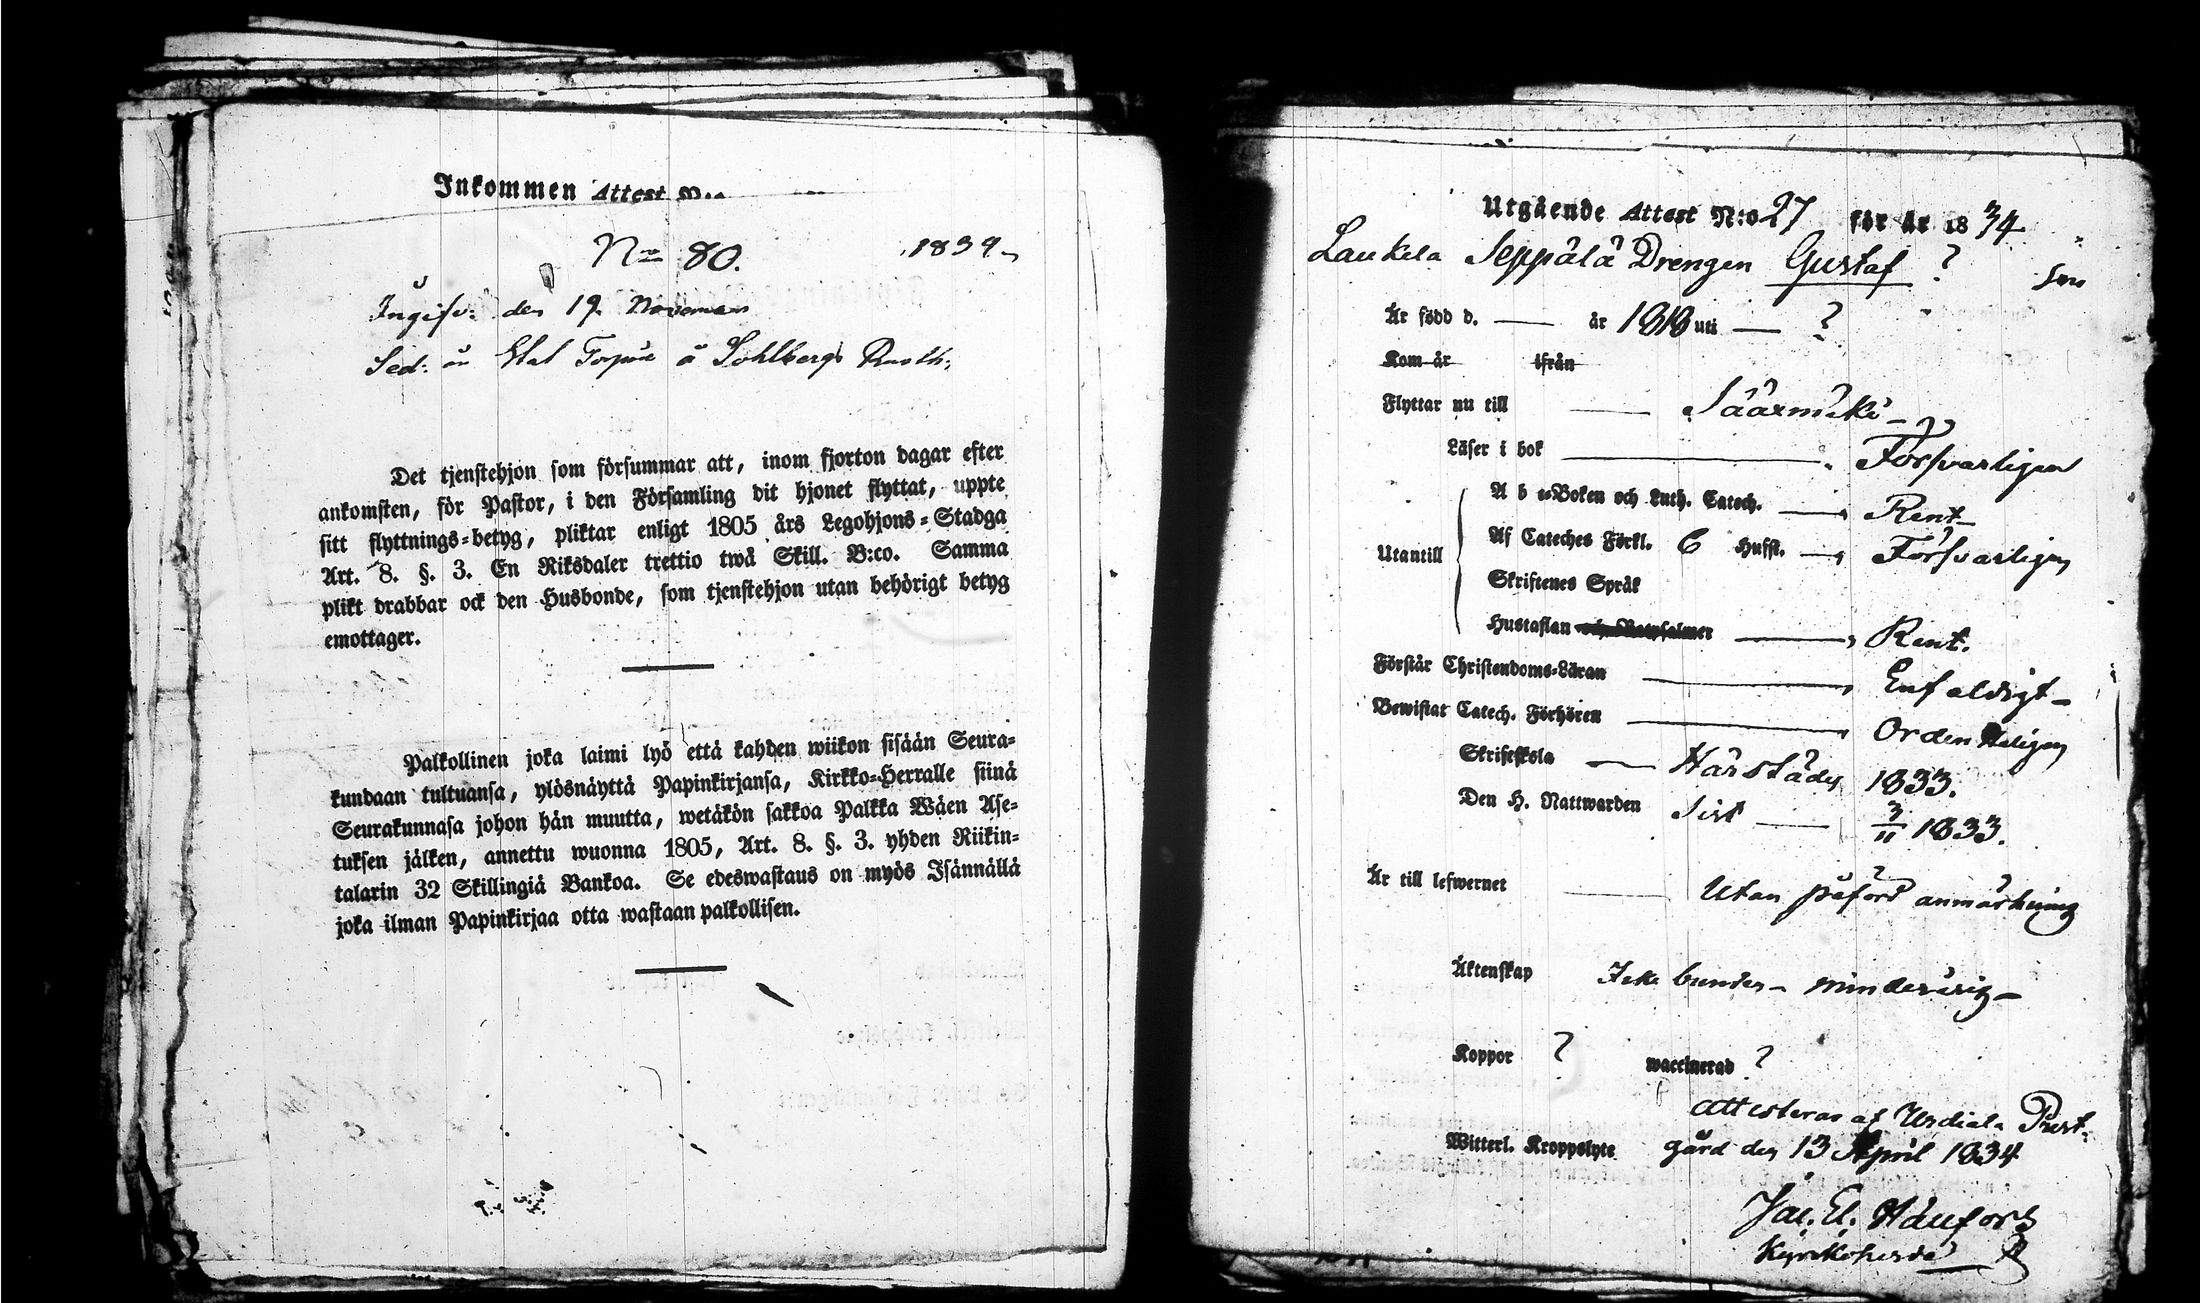 Inkommen Attest N:o
N:o 80. 1834
Ingifv: den 19. November
Sed: än Stat Torpare å Sohlbergs Rusth:
Det tjenstehjon som försummar att, inom fjorton dagar efter
ankomsten, för Pastor, i den Församling dit hjonet flyttat, uppte
sitt flyttnings=betyg, pliktar enligt 1805 års Legohjons=Stadga
Art. 8. §. 3. En Riksdaler trettio twå Skill. B:co. Samma
plikt drabbar ock den Husbonde, som tjenstehjon utan behörigt betyg
emottager.
Palkollinen joka laimi lyö että kahden wiikon sisään Seura=
kundaan tultuansa, ylösnäyttä Papinkirjansa, Kirkko=Herralle siinä
Seurakunnasa johon hän muutta, wetäkön sakkoa Palkka Wäen Ase=
tuksen jälken, annettu wuonna 1805, Art. 8. §. 3. yhden Riikin=
talarin 32 Skillingiä Bankoa. Se edeswastaus on myös Isännällä
joka ilman Papinkirjaa otta wastaan palkollisen.
Utgående Attest N:o 27 för år 1834
Laukela Seppälä Drengen Gustaf ? son
Är född d. — år 1818 uti — ?
Kom år ifrån
Flyttar nu till — Säärmäki
Läser i bok — Försvarligen
A b c=Boken och Luth. Catech. — Rent
Utantill Af Cateches Förkl. 6 Hufst. — Försvarligen
Skriftenes Språk
Hustaflan och Botpsalmer — Rent.
Förstår Christendoms=Läran — Enfaldigt
Bewistat Catech. Förhören — Ordenteligen
Skriftskola — Härstädes 1833.
Den H. Nattwarden Sist — 3/11 1833.
Är till lefwernet — Utan påförd anmärkning
Äktenskap Icke bunden – minderårig –
Koppor ? waccinerad ?
Attesteras af Urdiala Prest=
Witterl. Kroppslyte gård den 13 April 1834
Jac. El. Hänfors
Kyrkoherde